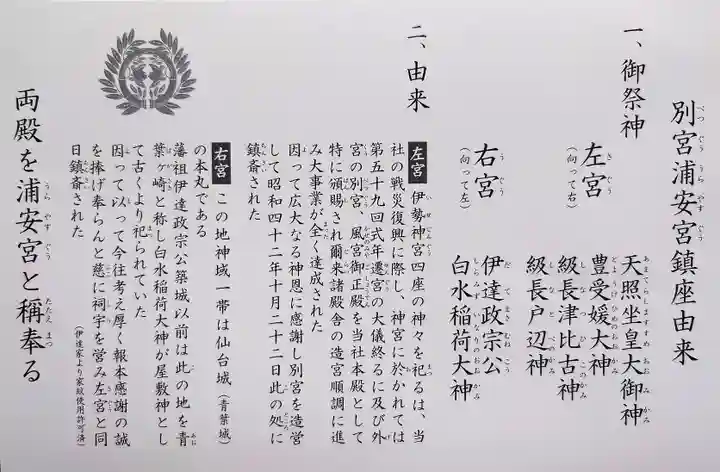 別宮浦安宮鎮座由来
一、御祭神
左宮（向って右）
天照坐皇大御神
豊受媛大神
級長津比古神
級長戸辺神
右宮（向って左）
伊達政宗公
白水稲荷大神
二、由来
左宮 伊勢神宮四座の神々を祀るは、当
社の戦災復興に際し、神宮に於かれては
第五十九回式年遷宮の大儀終るに及び外
宮の別宮、風宮御正殿を当社本殿として
特に頒賜され爾来諸殿舎の造宮順調に進
み大事業が全く達成された
因って広大なる神恩に感謝し別宮を造営
して昭和四十二年十月二十二日此の処に
鎮斎された
右宮 この地神域一帯は仙台城（青葉城）
の本丸である
藩祖伊達政宗公築城以前は此の地を青
葉ヶ崎と称し白水稲荷大神が屋敷神とし
て古くより祀られていた
因って以って今往考え厚く報本感謝の誠
を捧げ奉らんと慈に祠宇を営み左宮と同
日鎮斎された
（伊達家より家紋使用許可済）
両殿を浦安宮と稱奉る